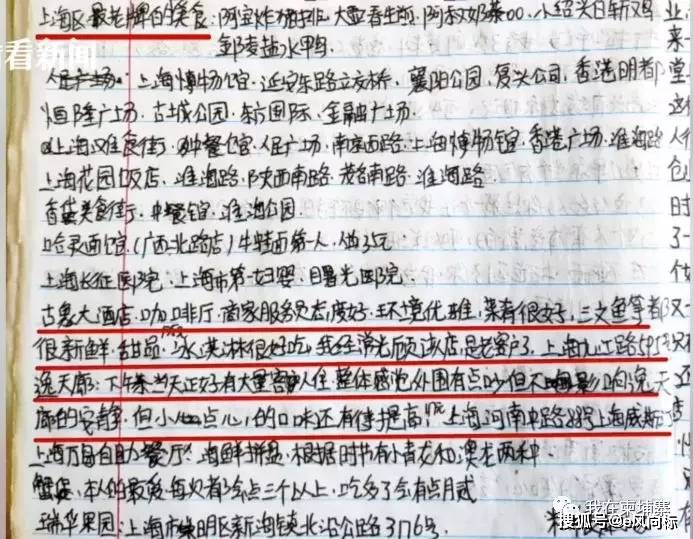 看看新闻
上海区最老牌的美食:阿宝炸猪排、大壶春生煎、阿叔奶茶00、小绍兴白斩鸡
盐水鸭
人民广场、上海博物馆、延安东路立交桥、襄阳公园、复兴公司、香港明都
恒隆广场、古城公园、东方国际、金融广场
上海美食街、中餐馆、人民广场、南京西路、上海博物馆、香港广场、淮海路
上海花园饭店、淮海路、陕西南路、茂名南路、淮海路
美食街、中餐馆、淮海公园
哈灵面馆、(广西北路店)牛蛙面第一、人均35元
上海长征医院、上海市第一妇婴、曙光医院
古象大酒店、咖啡厅、商家服务员态度好、环境优雅、菜肴很好、三文鱼等都
很新鲜、甜品、冰淇淋很好吃、我经常光顾该店、是老客户了、上海九江路595号
逸天廊:下午茶当天正好有大量客人住、整体感觉外围有点吵但不影响逸天
廊的安静、但小点心的口味还有待提高、上海河南中路88号上海威斯汀
上海万岛自助餐厅:海鲜拼盘、根据时节有小青龙和澳龙两种
蟹、本人的最爱每次都会点三个以上、吃多了会有点月贰
瑞华果园:上海市崇明区新海镇北沿公路3176号
我在柬埔寨
搜狐号@风向标